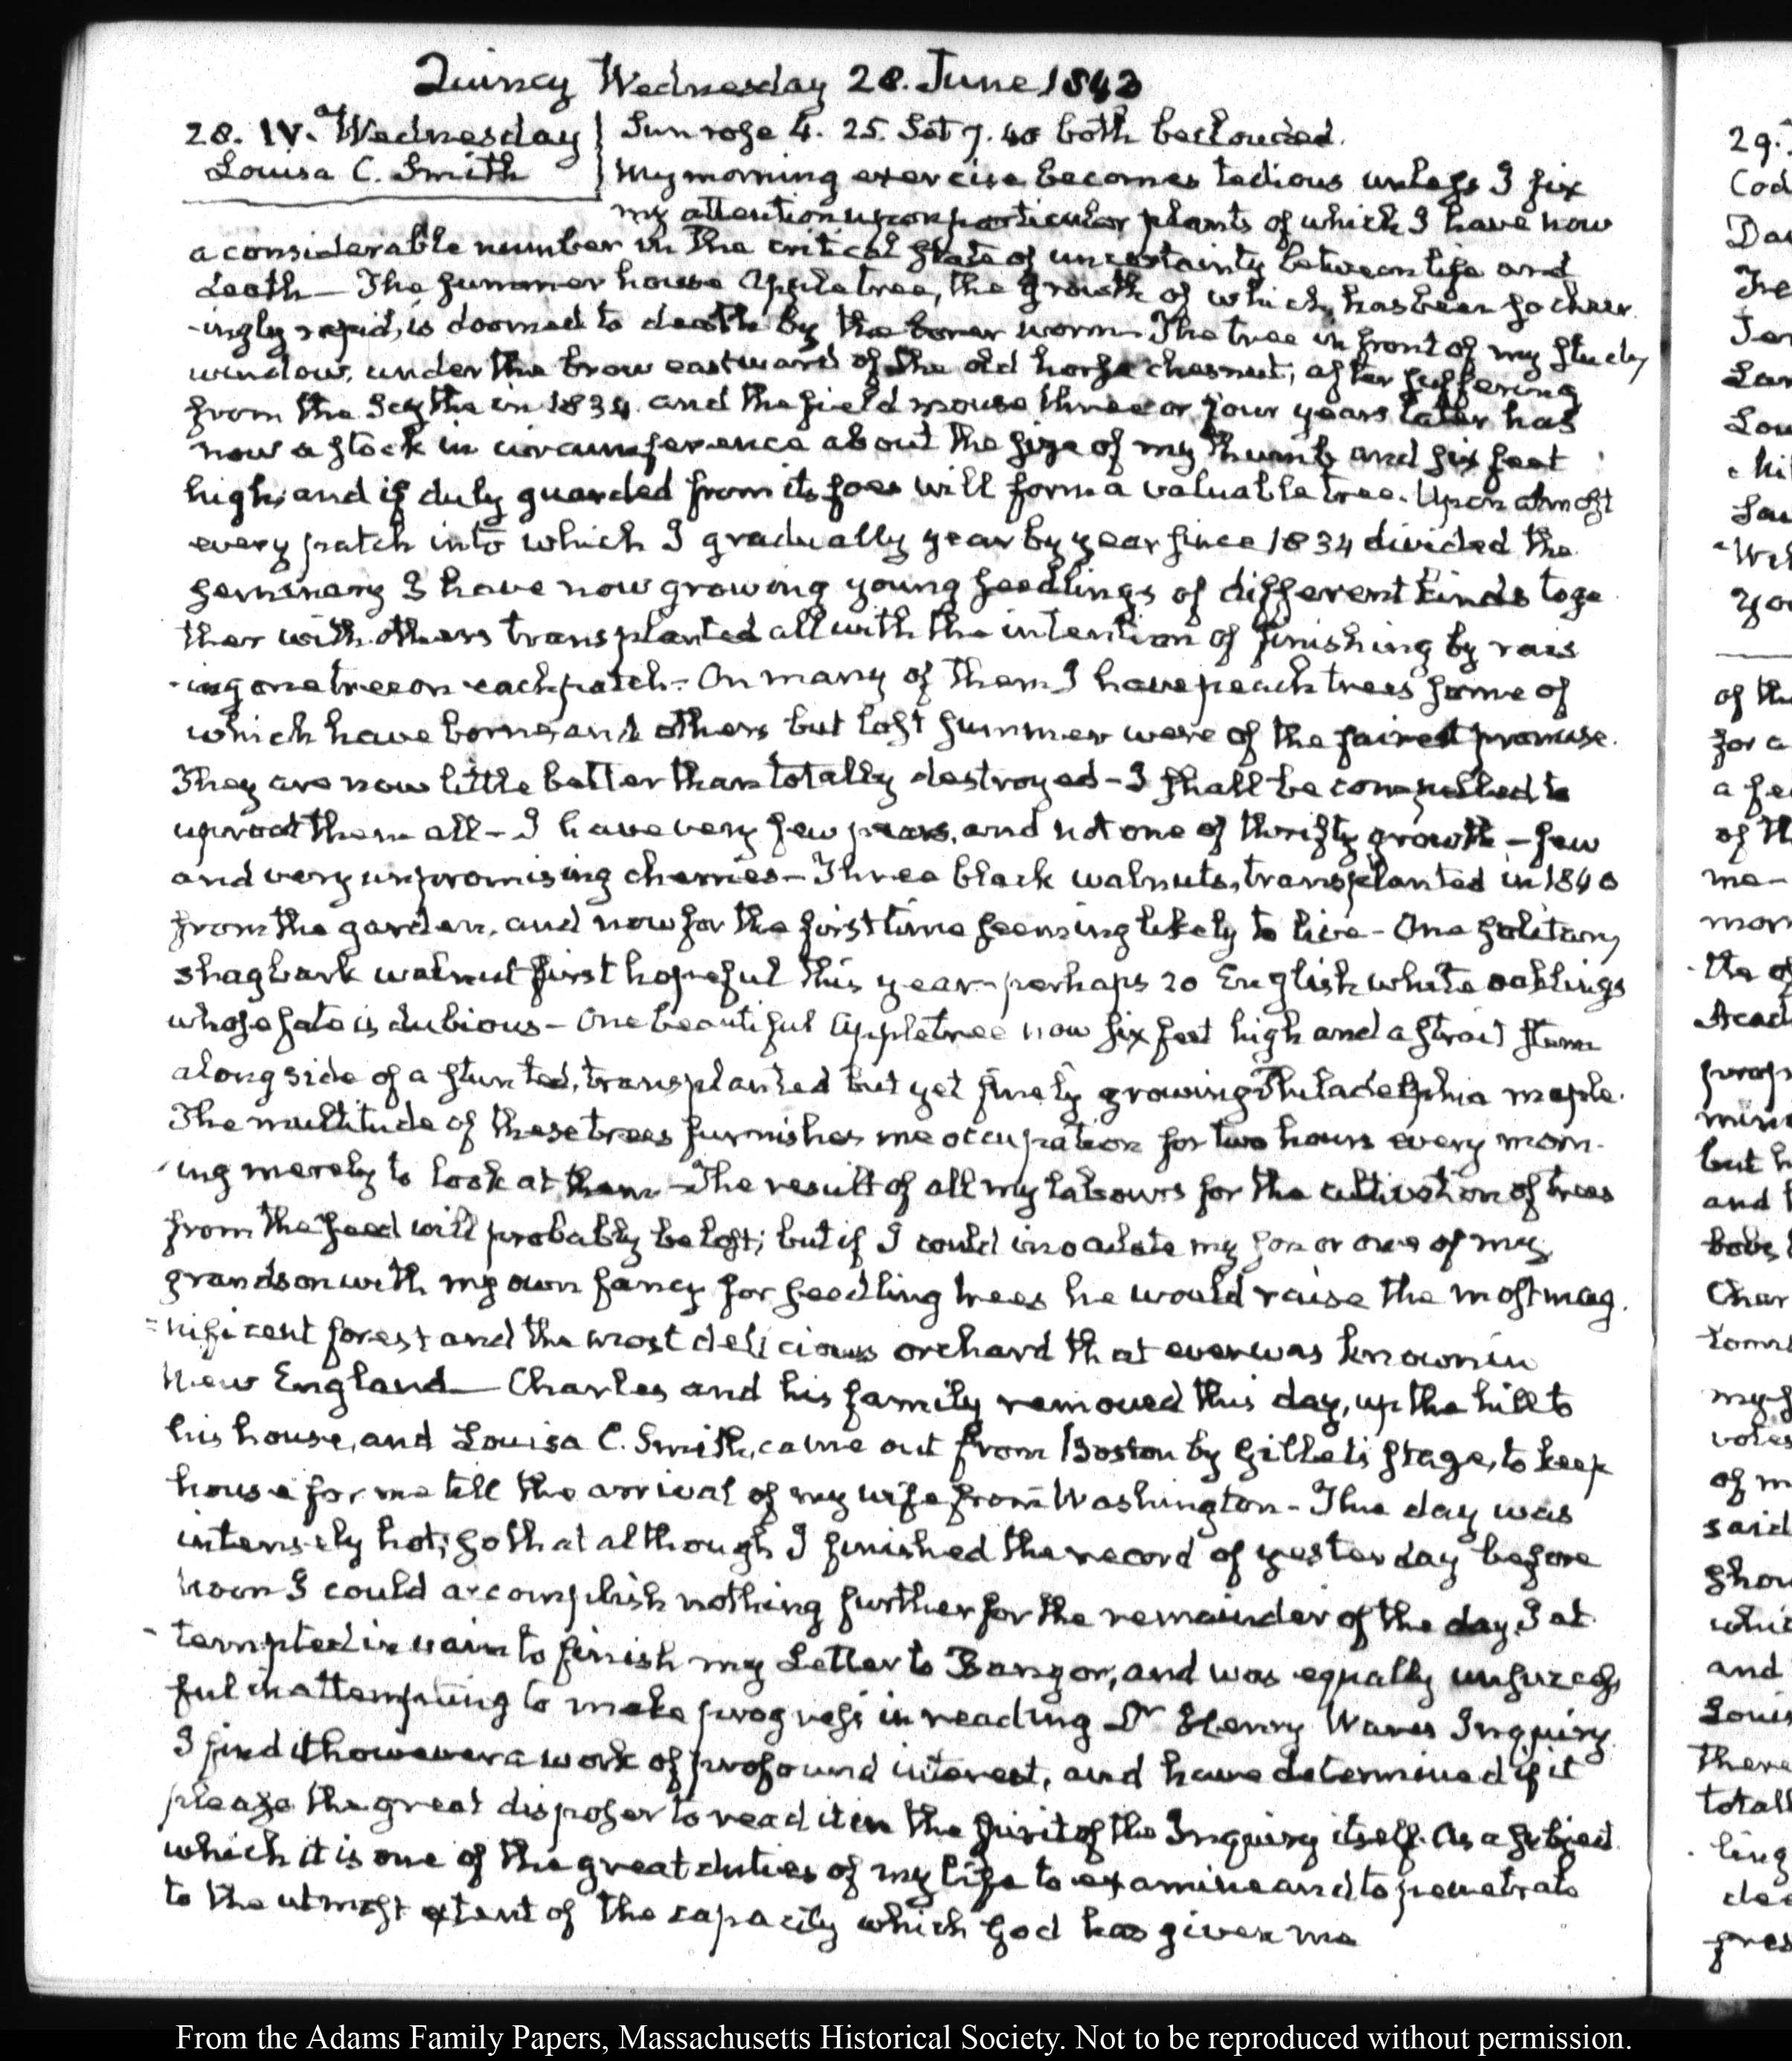 Quincy Wednesday 28. June 1843
28. IV. Wednesday
Louisa C. Smith
Sun rose 4. 25. Set 7. 40 both beclouded.
My morning exercise becomes tedious unless I fix
my attention upon particular plants of which I have now
a considerable number in the critical state of uncertainty between life and
death — The summer house Apple tree, the growth of which has been so cheer
-ingly rapid, is doomed to death by the borer worm. The tree in front of my study
window, under the brow eastward of the old horse chesnut, after suffering
from the scythe in 1834 and the field mouse three or four years later has
now a stock in circumference about the size of my thumb and six feet
high, and if duly guarded from its foes will form a valuable tree. Upon almost
every patch into which I gradually year by year since 1834 divided the
seminary I have now growing young seedlings of different kinds toge
ther with others transplanted all with the intention of finishing by rais
-ing one tree on each patch — On many of them I have peach trees some of
which have borne, and others but last summer were of the fairest promise.
They are now little better than totally destroyed — I shall be compelled to
uproot them all — I have very few pears, and not one of thrifty growth — few
and very unpromising cherries — Three black walnuts, transplanted in 1840
from the garden, and now for the first time seeming likely to live — One solitary
shagbark walnut first hopeful this year — perhaps 20 English white oaklings
whose fate is dubious — One beautiful Apple tree now six feet high and a strait stem
along side of a stunted, transplanted but yet finely growing Philadelphia maple.
The multitude of these trees furnishes me occupation for two hours every morn-
-ing merely to look at them — The result of all my labours for the cultivation of trees
from the seed will probably be lost; but if I could inoculate my son or one of my
grandson with my own fancy for seedling trees he would raise the most mag
=nificent forest and the most delicious orchard that ever was known in
New England — Charles and his family removed this day, up the hill to
his house, and Louisa C. Smith, came out from Boston by Gillet's stage, to keep
house for me till the arrival of my wife from Washington — The day was
intensely hot; so that although I finished the record of yesterday before
noon I could accomplish nothing further for the remainder of the day. I at
-tempted in vain to finish my Letter to Bangor, and was equally unsuccess
ful in attempting to make progress in reading Dr Henry Wares Inquiry
I find it however a work of profound interest, and have determined if it
please the great disposer to read it in the spirit of the Inquiry itself. As a subject
which it is one of the great duties of my life to examine and to penetrate
to the utmost extent of the capacity which God has given me
From the Adams Family Papers, Massachusetts Historical Society. Not to be reproduced without permission.